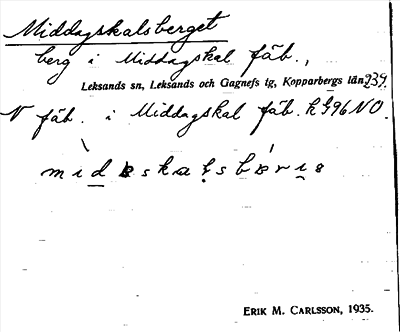 Middagskalsberget
berg i Middagskal fäb.,
Leksands sn, Leksands och Gagnefs tg, Kopparbergs län 239.
N fäb. i Middagskal fäb. k 96 NO.
ERIK M. CARLSSON, 1935.